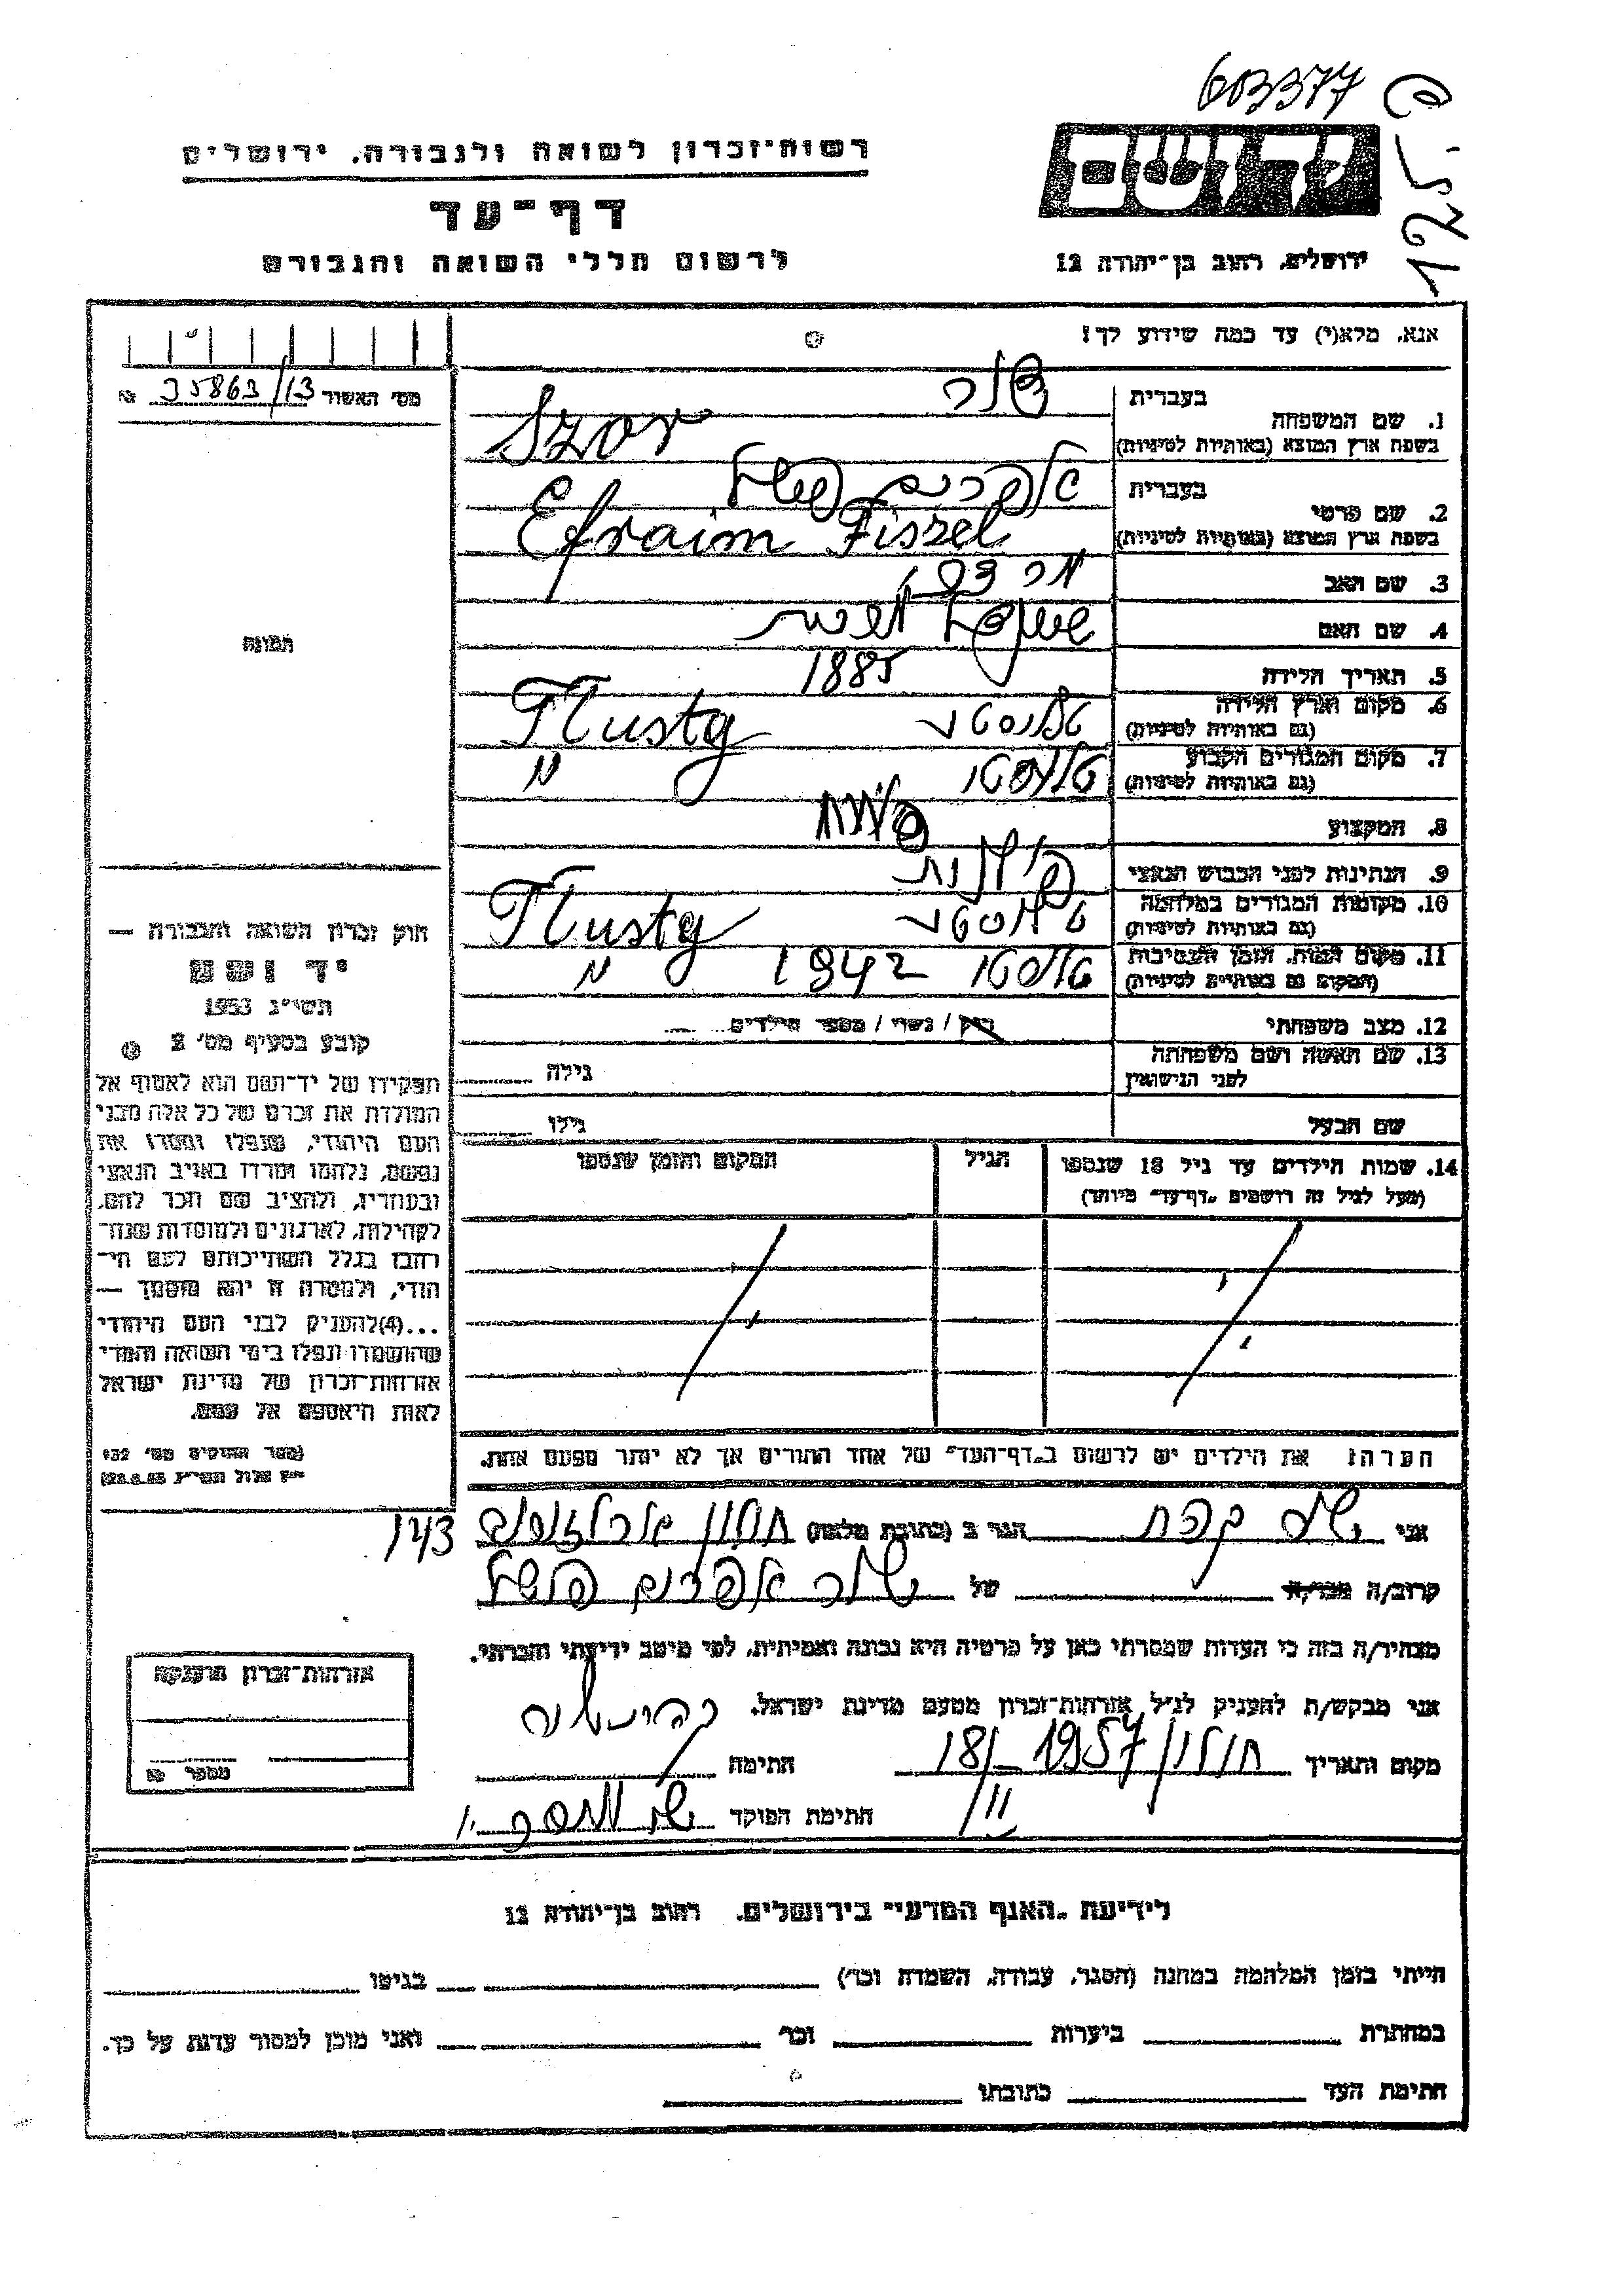 603377
125 ש
רשות־זכרון לשואה ולגבורה, ירושלים
דף־עד
לרשום חללי השואה והגבורה
ידושם
ירושלים, רחוב בן־יהודה 12
אנא, מלא(י) עד כמה שידוע לך!
מס׳ האשור 35863/13 №
1. שם המשפחה
בעברית
בשפת ארץ המוצא (באותיות לטיניות) Szor
2. שם פרטי
בעברית אפרים פישל
בשפת ארץ המוצא (באותיות לטיניות) Efraim Fiszel
3. שם האב
4. שם האם
5. תאריך הלידה 1885
6. מקום וארץ הלידה
(גם באותיות לטיניות) Tlusty
7. מקום המגורים הקבוע
(גם באותיות לטיניות) טלוסטו "
8. המקצוע
9. הנתינות לפני הכבוש הנאצי פולנית
10. מקומות המגורים במלחמה
(גם באותיות לטיניות) Tlusty
11. מקום המות, הזמן והנסיבות
(המקום גם באותיות לטיניות) טלוסטו 1942 "
12. מצב משפחתי רוק / נשוי / מספר הילדים
13. שם האשה ושם משפחתה
לפני הנישואין גילה
שם הבעל גילו
14. שמות הילדים עד גיל 18 שנספו
(מעל לגיל זה רושמים „דף־עד" מיוחד)
הגיל
המקום והזמן שנספו
הערה: את הילדים יש לרשום ב„דף־העד" של אחד ההורים אך לא יותר מפעם אחת.
תמונה
חוק זכרון השואה והגבורה —
יד ושם
תשי״ג 1953
קובע בסעיף מס׳ 2
תפקידו של יד־ושם הוא לאסוף אל
המולדת את זכרם של כל אלה מבני
העם היהודי, שנפלו ומסרו את
נפשם, נלחמו ומרדו באויב הנאצי
ובעוזריו, ולהציב שם וזכר להם,
לקהילות, לארגונים ולמוסדות שנח־
רבו בגלל השתייכותם לעם הי־
הודי, ולמטרה זו יהא מוסמך —
...(4)להעניק לבני העם היהודי
שהושמדו ונפלו בימי השואה והמרי
אזרחות־זכרון של מדינת ישראל
לאות היאספם אל עמם.
(ספר החוקים מס׳ 132
י״ז אלול תשי״ג 28.8.53)
אני הגר ב (כתובת מלאה) חולון 143
קרוב/ה מכר/ה של אפרים פישל
מצהיר/ה בזה כי העדות שמסרתי כאן על פרטיה היא נכונה ואמיתית, לפי מיטב ידיעתי והכרתי.
אני מבקש/ת להעניק לנ״ל אזרחות־זכרון מטעם מדינת ישראל.
מקום ותאריך חולון/ 1957 18/II חתימה
חתימת הפוקד
אזרחות־זכרון הוענקה
מספר №
לידיעת „האגף המדעי" בירושלים, רחוב בן־יהודה 12
הייתי בזמן המלחמה במחנה (הסגר, עבודה, השמדה וכו׳) בגיטו
במחתרת ביערות וכו׳ ואני מוכן למסור עדות על כך.
חתימת העד כתובתו